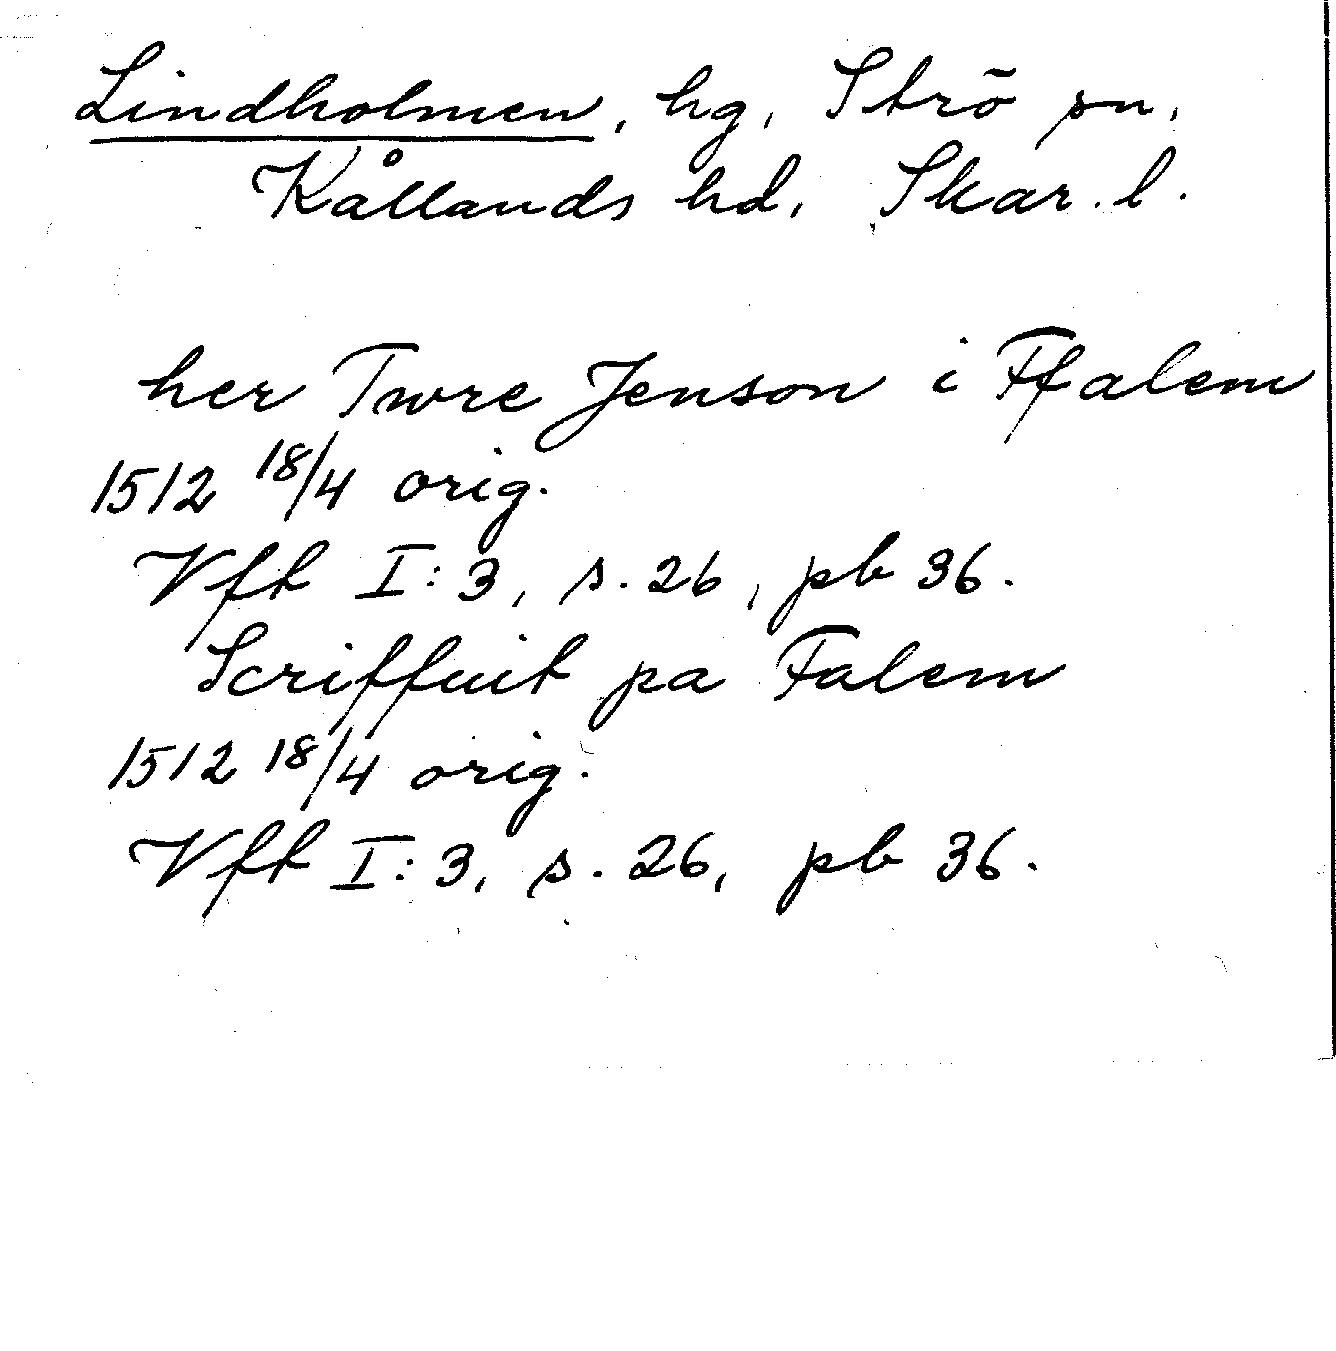 Lindholmen, hg, Strö sn,
Kållands hd, Skar. l.
her Twre Jenson i Ffalem
1512 18/4 orig.
Vft I:3, s. 26, pb 36.
Scriffuit pa Falem
1512 18/4 orig.
Vft I:3, s. 26, pb 36.